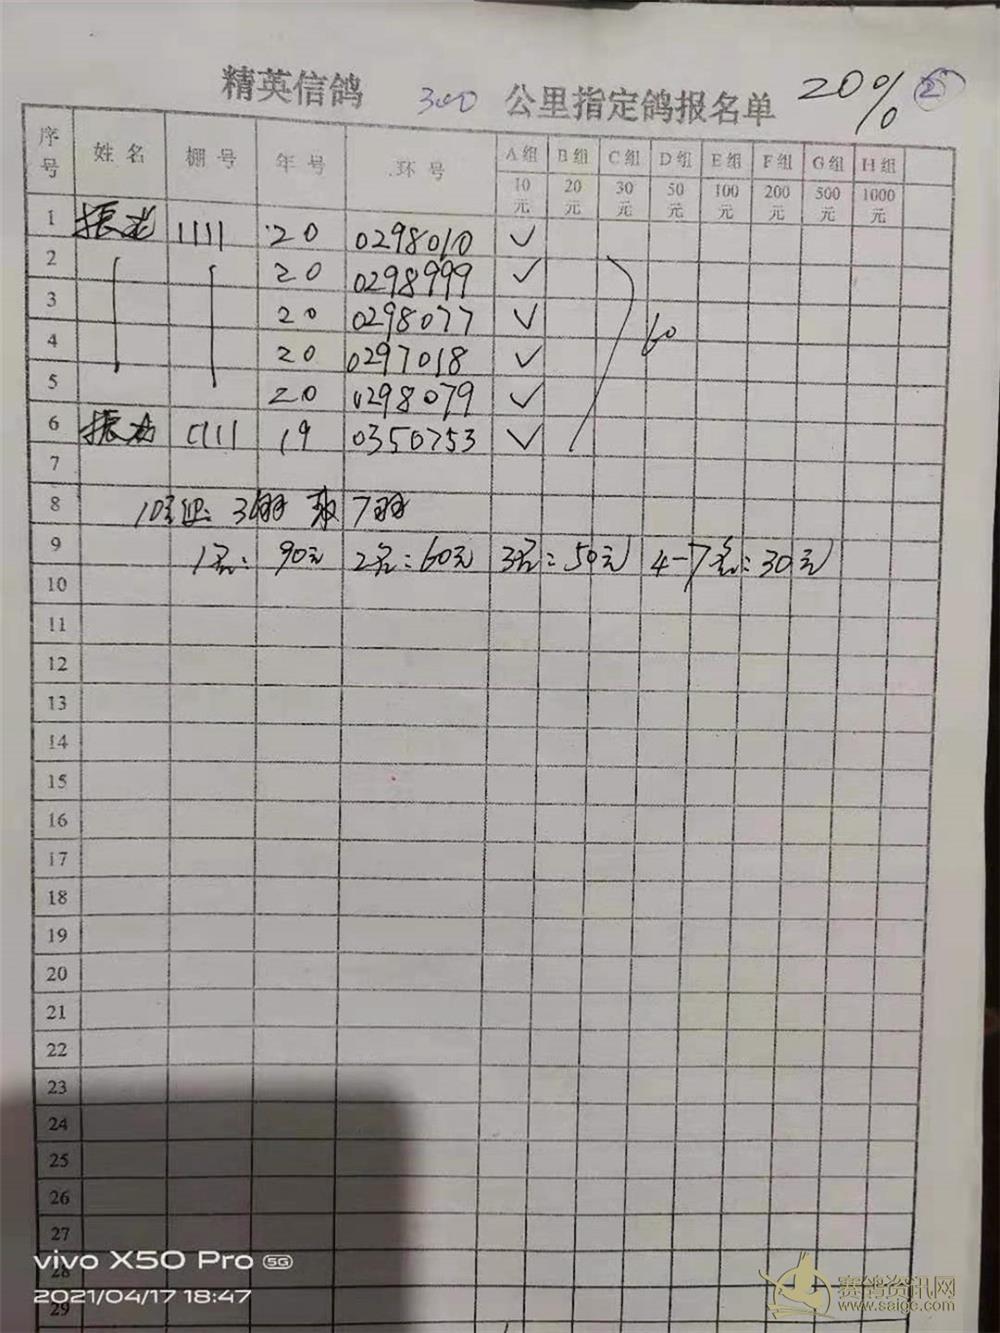 精英信鸽 300 公里指定鸽报名单 20% ②
序号 姓名 棚号 年号 环号 A组 B组 C组 D组 E组 F组 G组 H组
10元 20元 30元 50元 100元 200元 500元 1000元
1 振龙 1111 20 0298010 ✓
2 20 0298999 ✓
3 20 0298077 ✓ 60
4 20 0297018 ✓
5 20 0298079 ✓
6 1111 19 0350753 ✓
7
8 10元组: 羽 取7羽
9 1名: 90元 2名=60元 3名=50元 4-7名=30元
10
11
12
13
14
15
16
17
18
19
20
21
22
23
24
25
26
27
28
29
vivo X50 Pro 5G
2021/04/17 18:47
赛鸽资讯网
www.saige.com